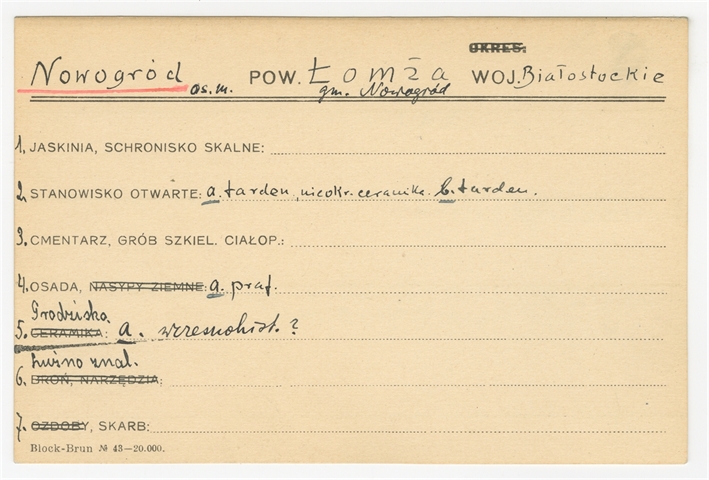 OKRES:
Nowogród os.m. POW. Łomża WOJ. Białostockie
gm. Nowogród
1. JASKINIA, SCHRONISKO SKALNE:
2. STANOWISKO OTWARTE: a. tarden, nieokr. ceramika. b. tarden.
3. CMENTARZ, GRÓB SZKIEL. CIAŁOP.:
4. OSADA, NASYPY ZIEMNE: a. praf.
Grodziska
5. CERAMIKA: a. wczesnohist.?
Luźno znal.
6. BROŃ, NARZĘDZIA:
7. OZDOBY, SKARB:
Block-Brun № 43—20.000.